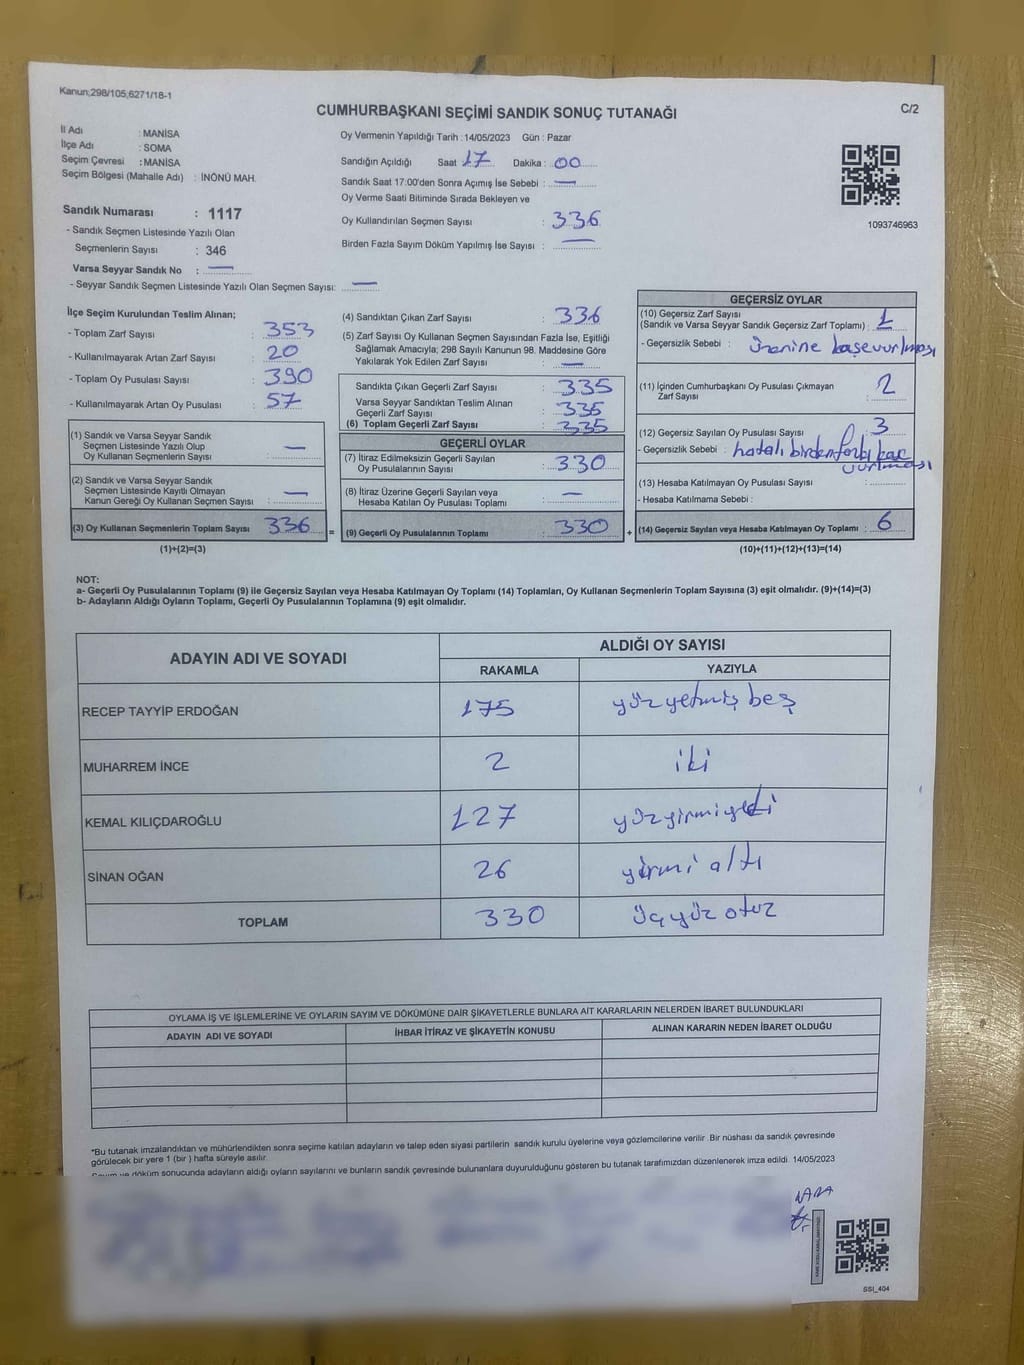 Kanun;298/105,6271/18-1
CUMHURBAŞKANI SEÇİMİ SANDIK SONUÇ TUTANAĞI
C/2
İl Adı : MANİSA
İlçe Adı : SOMA
Seçim Çevresi : MANİSA
Seçim Bölgesi (Mahalle Adı) : İNÖNÜ MAH.
Sandık Numarası : 1117
- Sandık Seçmen Listesinde Yazılı Olan
Seçmenlerin Sayısı : 346
Varsa Seyyar Sandık No : —
- Seyyar Sandık Seçmen Listesinde Yazılı Olan Seçmen Sayısı: —
Oy Vermenin Yapıldığı Tarih : 14/05/2023 Gün : Pazar
Sandığın Açıldığı Saat 17 Dakika : 00
Sandık Saat 17:00'den Sonra Açımış İse Sebebi : —
Oy Verme Saati Bitiminde Sırada Bekleyen ve
Oy Kullandırılan Seçmen Sayısı : 336
Birden Fazla Sayım Döküm Yapılmış İse Sayısı : —
1093746963
İlçe Seçim Kurulundan Teslim Alınan;
- Toplam Zarf Sayısı : 353
- Kullanılmayarak Artan Zarf Sayısı : 20
- Toplam Oy Pusulası Sayısı : 390
- Kullanılmayarak Artan Oy Pusulası : 57
(1) Sandık ve Varsa Seyyar Sandık
Seçmen Listesinde Yazılı Olup
Oy Kullanan Seçmenlerin Sayısı : —
(2) Sandık ve Varsa Seyyar Sandık
Seçmen Listesinde Kayıtlı Olmayan
Kanun Gereği Oy Kullanan Seçmen Sayısı : —
(3) Oy Kullanan Seçmenlerin Toplam Sayısı : 336 =
(1)+(2)=(3)
(4) Sandıktan Çıkan Zarf Sayısı : 336
(5) Zarf Sayısı Oy Kullanan Seçmen Sayısından Fazla İse, Eşitliği
Sağlamak Amacıyla; 298 Sayılı Kanunun 98. Maddesine Göre
Yakılarak Yok Edilen Zarf Sayısı : —
Sandıkta Çıkan Geçerli Zarf Sayısı : 335
Varsa Seyyar Sandıktan Teslim Alınan
Geçerli Zarf Sayısı : 335
(6) Toplam Geçerli Zarf Sayısı : 335
GEÇERLİ OYLAR
(7) İtiraz Edilmeksizin Geçerli Sayılan
Oy Pusulalarının Sayısı : 330
(8) İtiraz Üzerine Geçerli Sayılan veya
Hesaba Katılan Oy Pusulası Toplamı : —
(9) Geçerli Oy Pusulalarının Toplamı : 330 +
GEÇERSİZ OYLAR
(10) Geçersiz Zarf Sayısı
(Sandık ve Varsa Seyyar Sandık Geçersiz Zarf Toplamı) : 1
- Geçersizlik Sebebi : üzerine kaşe vurulması
(11) İçinden Cumhurbaşkanı Oy Pusulası Çıkmayan
Zarf Sayısı : 2
(12) Geçersiz Sayılan Oy Pusulası Sayısı : 3
- Geçersizlik Sebebi : hatalı birden fazla kaç
vurulması
(13) Hesaba Katılmayan Oy Pusulası Sayısı :
- Hesaba Katılmama Sebebi :
(14) Geçersiz Sayılan veya Hesaba Katılmayan Oy Toplamı : 6
(10)+(11)+(12)+(13)=(14)
NOT:
a- Geçerli Oy Pusulalarının Toplamı (9) ile Geçersiz Sayılan veya Hesaba Katılmayan Oy Toplamı (14) Toplamları, Oy Kullanan Seçmenlerin Toplam Sayısına (3) eşit olmalıdır. (9)+(14)=(3)
b- Adayların Aldığı Oyların Toplamı, Geçerli Oy Pusulalarının Toplamına (9) eşit olmalıdır.
ADAYIN ADI VE SOYADI ALDIĞI OY SAYISI
RAKAMLA YAZIYLA
RECEP TAYYİP ERDOĞAN 175 yüz yetmiş beş
MUHARREM İNCE 2 iki
KEMAL KILIÇDAROĞLU 127 yüz yirmi yedi
SİNAN OĞAN 26 yirmi altı
TOPLAM 330 üçyüz otuz
OYLAMA İŞ VE İŞLEMLERİNE VE OYLARIN SAYIM VE DÖKÜMÜNE DAİR ŞİKAYETLERLE BUNLARA AİT KARARLARIN NELERDEN İBARET BULUNDUKLARI
ADAYIN ADI VE SOYADI İHBAR İTİRAZ VE ŞİKAYETİN KONUSU ALINAN KARARIN NEDEN İBARET OLDUĞU
*Bu tutanak imzalandıktan ve mühürlendikten sonra seçime katılan adayların ve talep eden siyasi partilerin sandık kurulu üyelerine veya gözlemcilerine verilir .Bir nüshası da sandık çevresinde
görülecek bir yere 1 (bir ) hafta süreyle asılır.
Sayım ve döküm sonucunda adayların aldığı oyların sayılarını ve bunların sandık çevresinde bulunanlara duyurulduğunu gösteren bu tutanak tarafımızdan düzenlenerek imza edildi. 14/05/2023
SSI_404